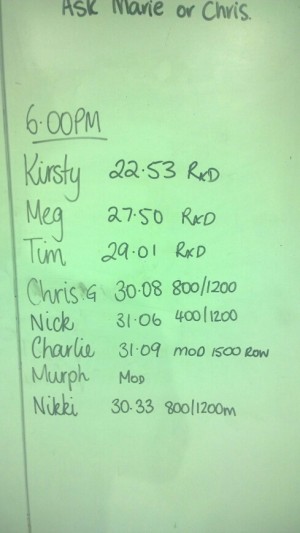 Ask Marie or Chris.
6.00PM
Kirsty 22.53 RxD
Meg 27.50 RxD
Tim 29.01 RxD
Chris G 30.08 800/1200
Nick 31.06 400/1200
Charlie 31.09 MOD 1500 ROW
Murph MOD
Nikki 30.33 800/1200m